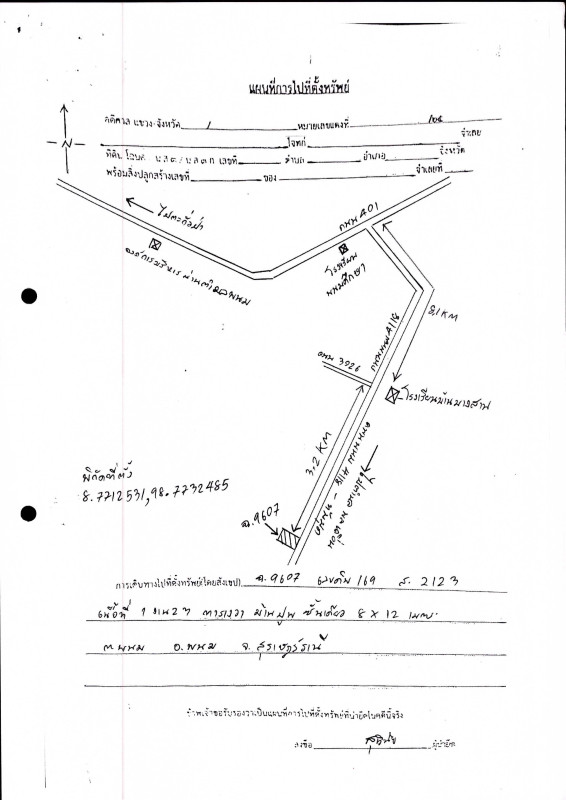 แผนที่การไปที่ตั้งทรัพย์
คดีศาล แขวง-จังหวัด 1 หมายเลขแดงที่
โจทก์ จำเลย
ที่ดิน โฉนด น.ส.๓/น.ส.๓ ก เลขที่ ตำบล อำเภอ จังหวัด
พร้อมสิ่งปลูกสร้างเลขที่ ของ จำเลยที่
N
ไปตะกั่วป่า
องค์การบริหารส่วนตำบลพนม
ถนน 401
โรงเรียนพนมศึกษา
8.1 KM
ถนนพนม 4118
ถนน 3926
โรงเรียนบ้านบางสาน
3.2 KM
ถนนพนม 4118 -
พิกัดที่ตั้ง
8.7712531, 98.7732485
ฉ.9607
การเดินทางไปที่ตั้งทรัพย์(โดยสังเขป) ฉ.9607 เลขดิน 169 ส. 2123
เนื้อที่ 1 งาน 23 ตารางวา บ้านปูน ชั้นเดียว 8 x 12 เมตร
ต.พนม อ.พนม จ.สุราษฎร์ธานี
ข้าพเจ้าขอรับรองว่าเป็นแผนที่การไปที่ตั้งทรัพย์ที่นำยึดในคดีนี้จริง
ลงชื่อ ผู้นำยึด